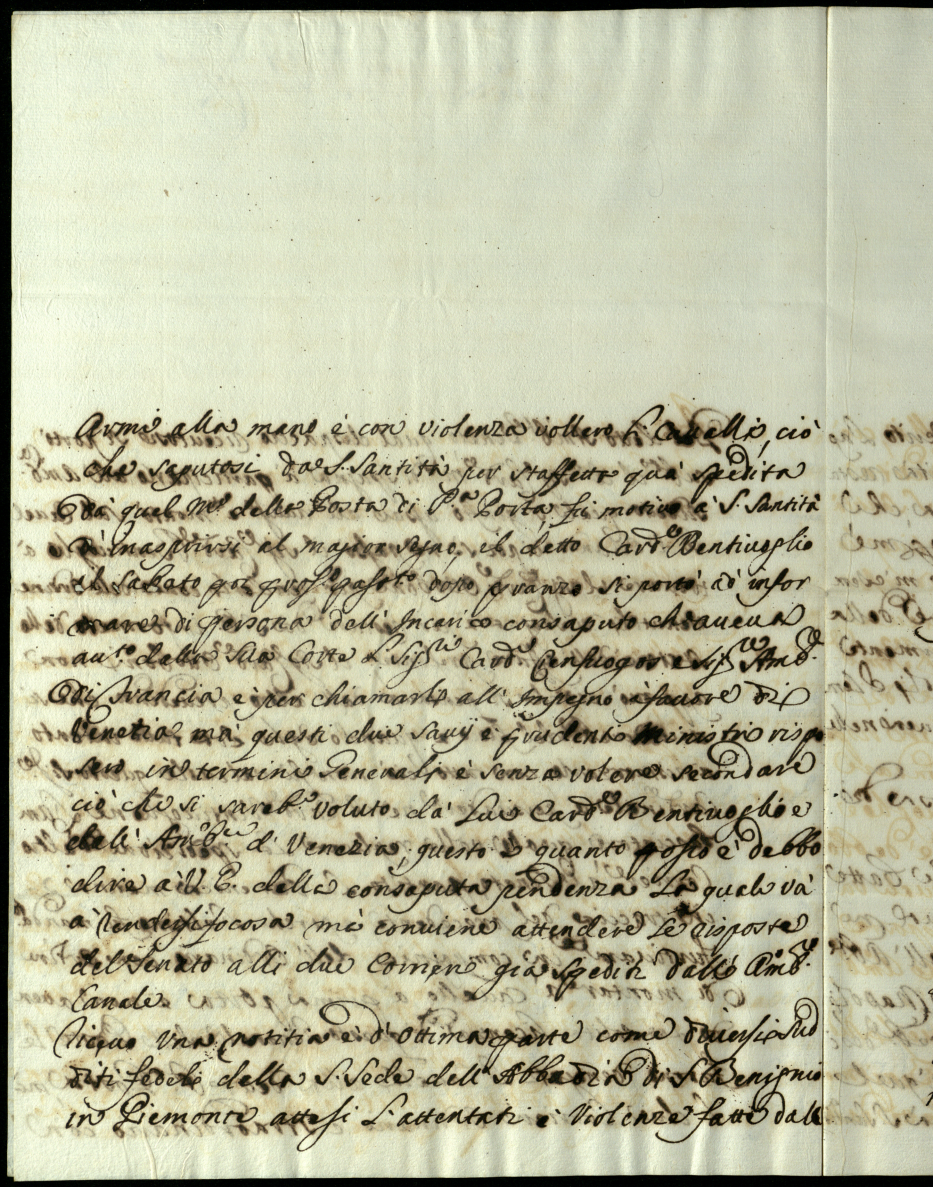 Armi alla mano è con violenza vollero L Cavalli, ciò
che saputosi da S. Santità per staffetta quà spedita
Dà quel M.ro della Posta di P.a Porta fù motivo à S. Santità
d'inasprirsi al maggior segno, il detto Card.e Bentivoglio
al Sabato poi pross.o pass.to dopo pranzo si portò ad infor
mare di persona dell'Incarico consaputo ch'aveva
au.to dalla Sua Corte L Sig.ri Card. Cenfuogos e Sig.r Amb.e
Di Francia è per chiamarli all'Impegno à favore di
Venetia, mà questi due Savij è Prudenti Ministri rispo
sero in termini Generali è senza volere secondare
ciò che si sareb.e voluto dà Lui Card.e Bentivoglio e
dall' Amb.e d' Venezia, questo è quanto posso è debbo
dire à V. E. della consaputa pendenza La quale và
à rendersi focosa mà conviene attendere Le risposte
del Senato alli due Corrieri già spediti dallo Amb.e
Canale
Ricevo una notitia è d'ottima parte come diversi Sud
diti fedeli della S. Sede dell'Abbadia Di S. Benigno
in Piemonte attesi L'attentati è Violenze fatte dall